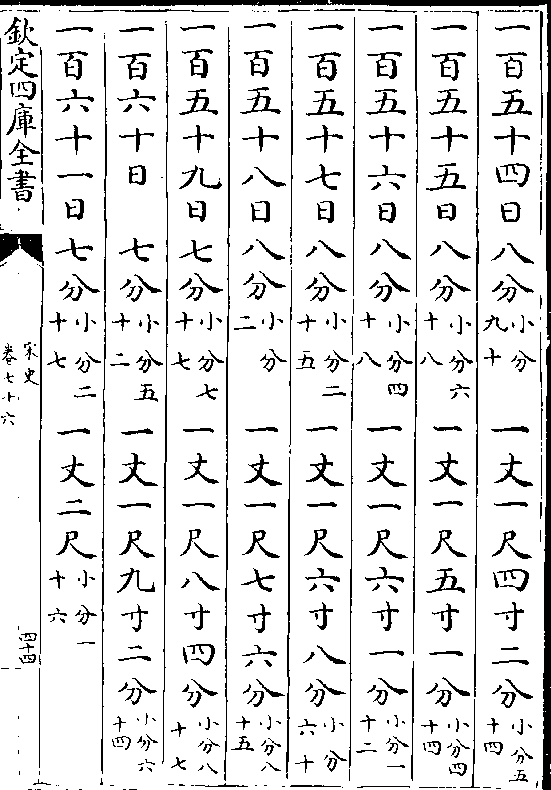 一百五十四日八分小分九十一丈一尺四寸二分小分五十四
一百五十五日八分小分六十八一丈一尺五寸一分小分四十四
一百五十六日八分小分四十八一丈一尺六寸一分小分一十二
一百五十七日八分小分二十五一丈一尺六寸八分小分六十
一百五十八日八分小分二一丈一尺七寸六分小分八十五
一百五十九日七分小分七十七一丈一尺八寸四分小分八十七
一百六十日七分小分五十二一丈一尺九寸二分小分六十四
一百六十一日七分小分二十七一丈二尺小分一十六
欽定四庫全書
宋史
卷七十六
四十四